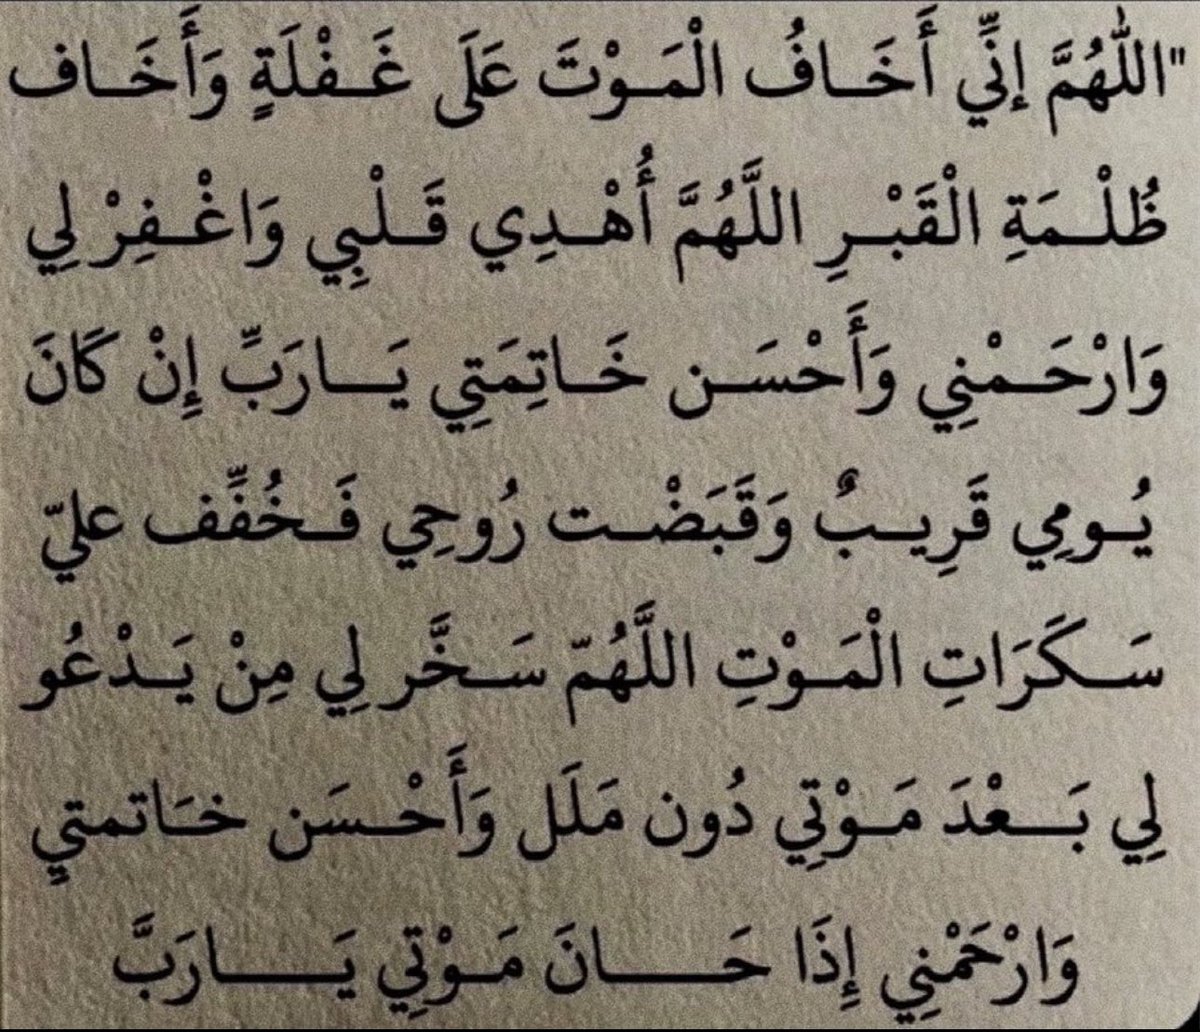 "اللّٰهُمَّ إنِّي أَخَـافُ الْمَـوْتَ عَلَى غَـفْلَةٍ وَأَخَـاف
ظُلْـمَةِ الْقَبْـرِ اللَّهُمَّ أُهْـدِي قَـلْبِي وَاغْـفِرْ لِي
وَارْحَـمْنِي وَأَحْسَـن خَـاتِمَتِي يَـارَبِّ إِنْ كَانَ
يُـومِي قَرِيـبٌ وَقَبَضْـت رُوحِي فَـخُفِّف عليّ
سَـكَرَاتِ الْمَـوْتِ اللَّهُمّ سَـخَّر لِي مِنْ يَـدْعُو
لِي بَـعْدَ مَـوْتِي دُون مَلَل وَأَحْـسَن خـَاتمتيٍ
وَارْحَمْنِي إِذَا حَـانَ مَـوْتِي يَـارَبَّ